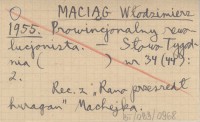 MACIĄG Włodzimierz
1955. Prowincjonalny rewo-
lucjonista. – Słowo Tygod-
nia ( ) nr 34 (44):
2.
Rec. z „Rano przeszedł
huragan" Machejka.